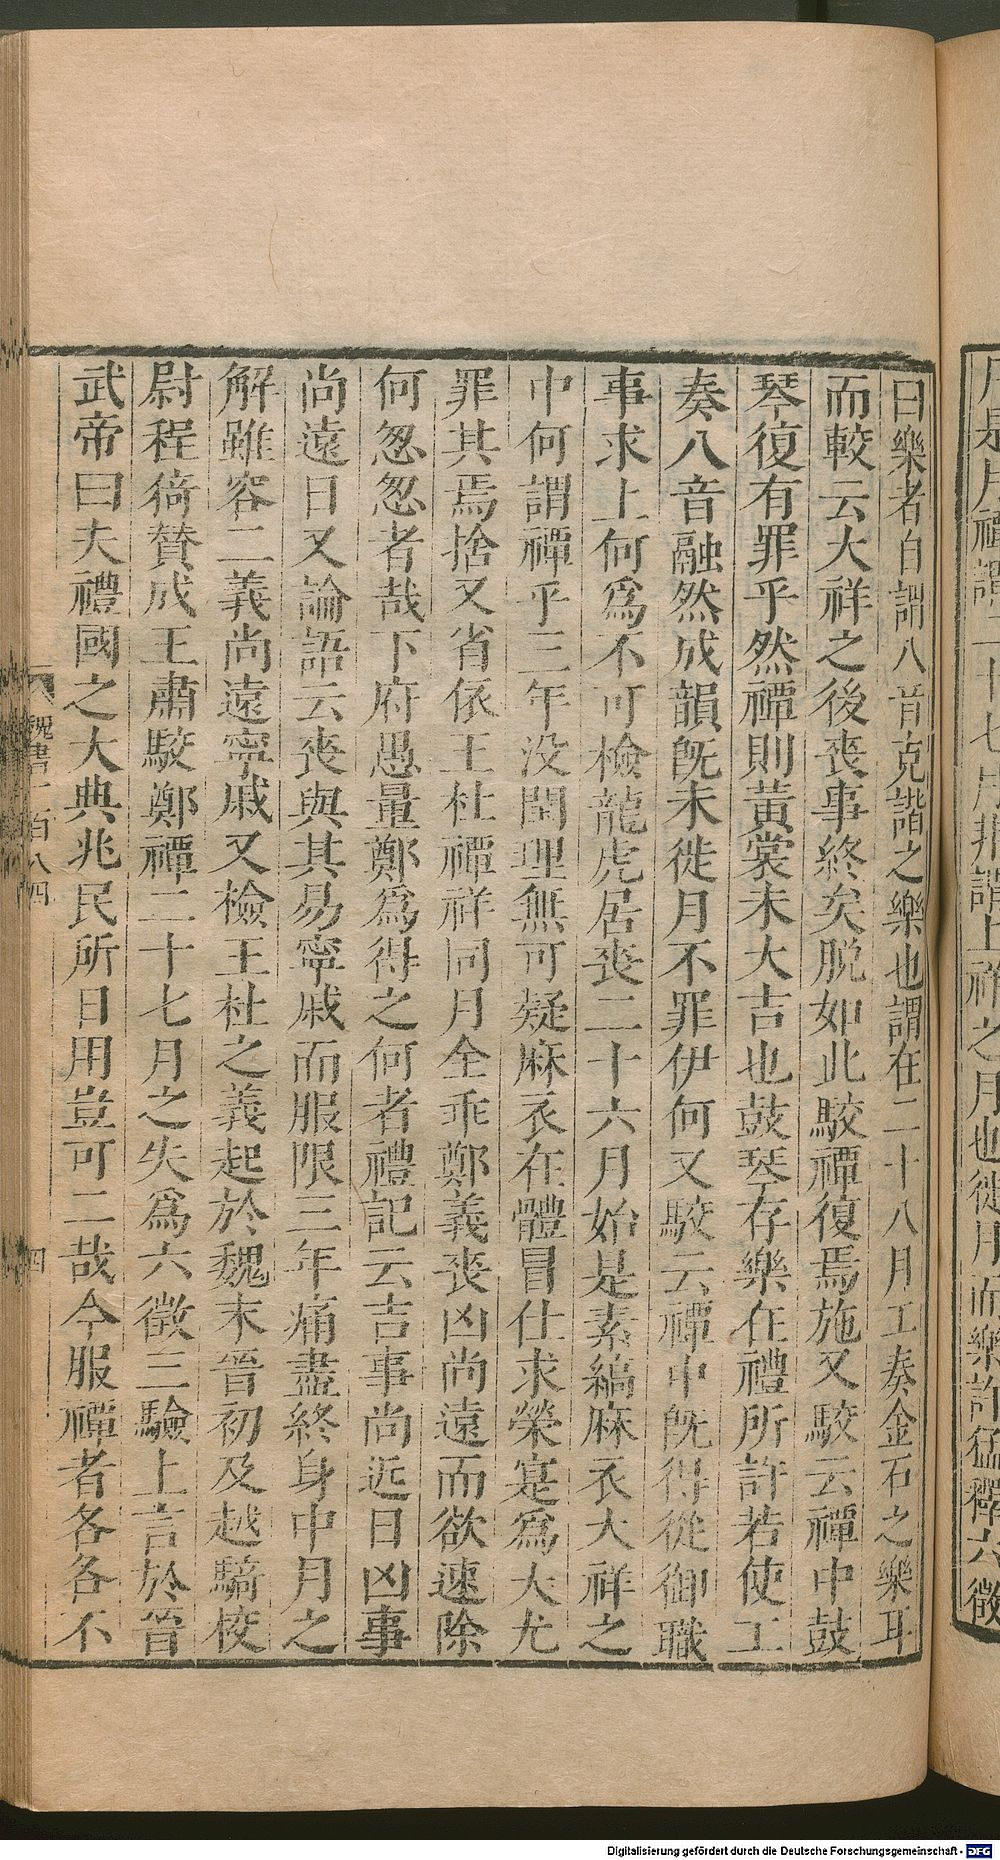 月是月禫謂二十七月非謂上祥之月也徙月而樂許猛釋六徵
曰樂者自謂八音克諧之樂也謂在二十八月工奏金石之樂耳
而較云大祥之後喪事終矣脫如此駮禫復焉施又駮云禫中鼓
琴復有罪乎然禫則黃裳未大吉也鼓琴存樂在禮所許若使工
奏八音融然成韻旣未徙月不罪伊何又駮云禫中旣得從御職
事求上何爲不可檢龍虎居喪二十六月始是素縞麻衣大祥之
中何謂禫乎三年没閏理無可疑麻衣在體冒仕求榮寔爲大尤
罪其焉捨又省依王杜禫祥同月全乖鄭義喪凶尚遠而欲速除
何怱怱者哉下府愚量鄭爲得之何者禮記云吉事尚近日凶事
尚遠日又論語云喪與其易寧戚而服限三年痛盡終身中月之
解雖容二義尚遠寧戚又檢王杜之義起於魏末晉初及越騎校
尉程猗贊成王肅駮鄭禫二十七月之失爲六徵三驗上言於晉
武帝曰夫禮國之大典兆民所日用豈可二哉今服禫者各各不
魏書一百八四
四
Digitalisierung gefördert durch die Deutsche Forschungsgemeinschaft - DFG